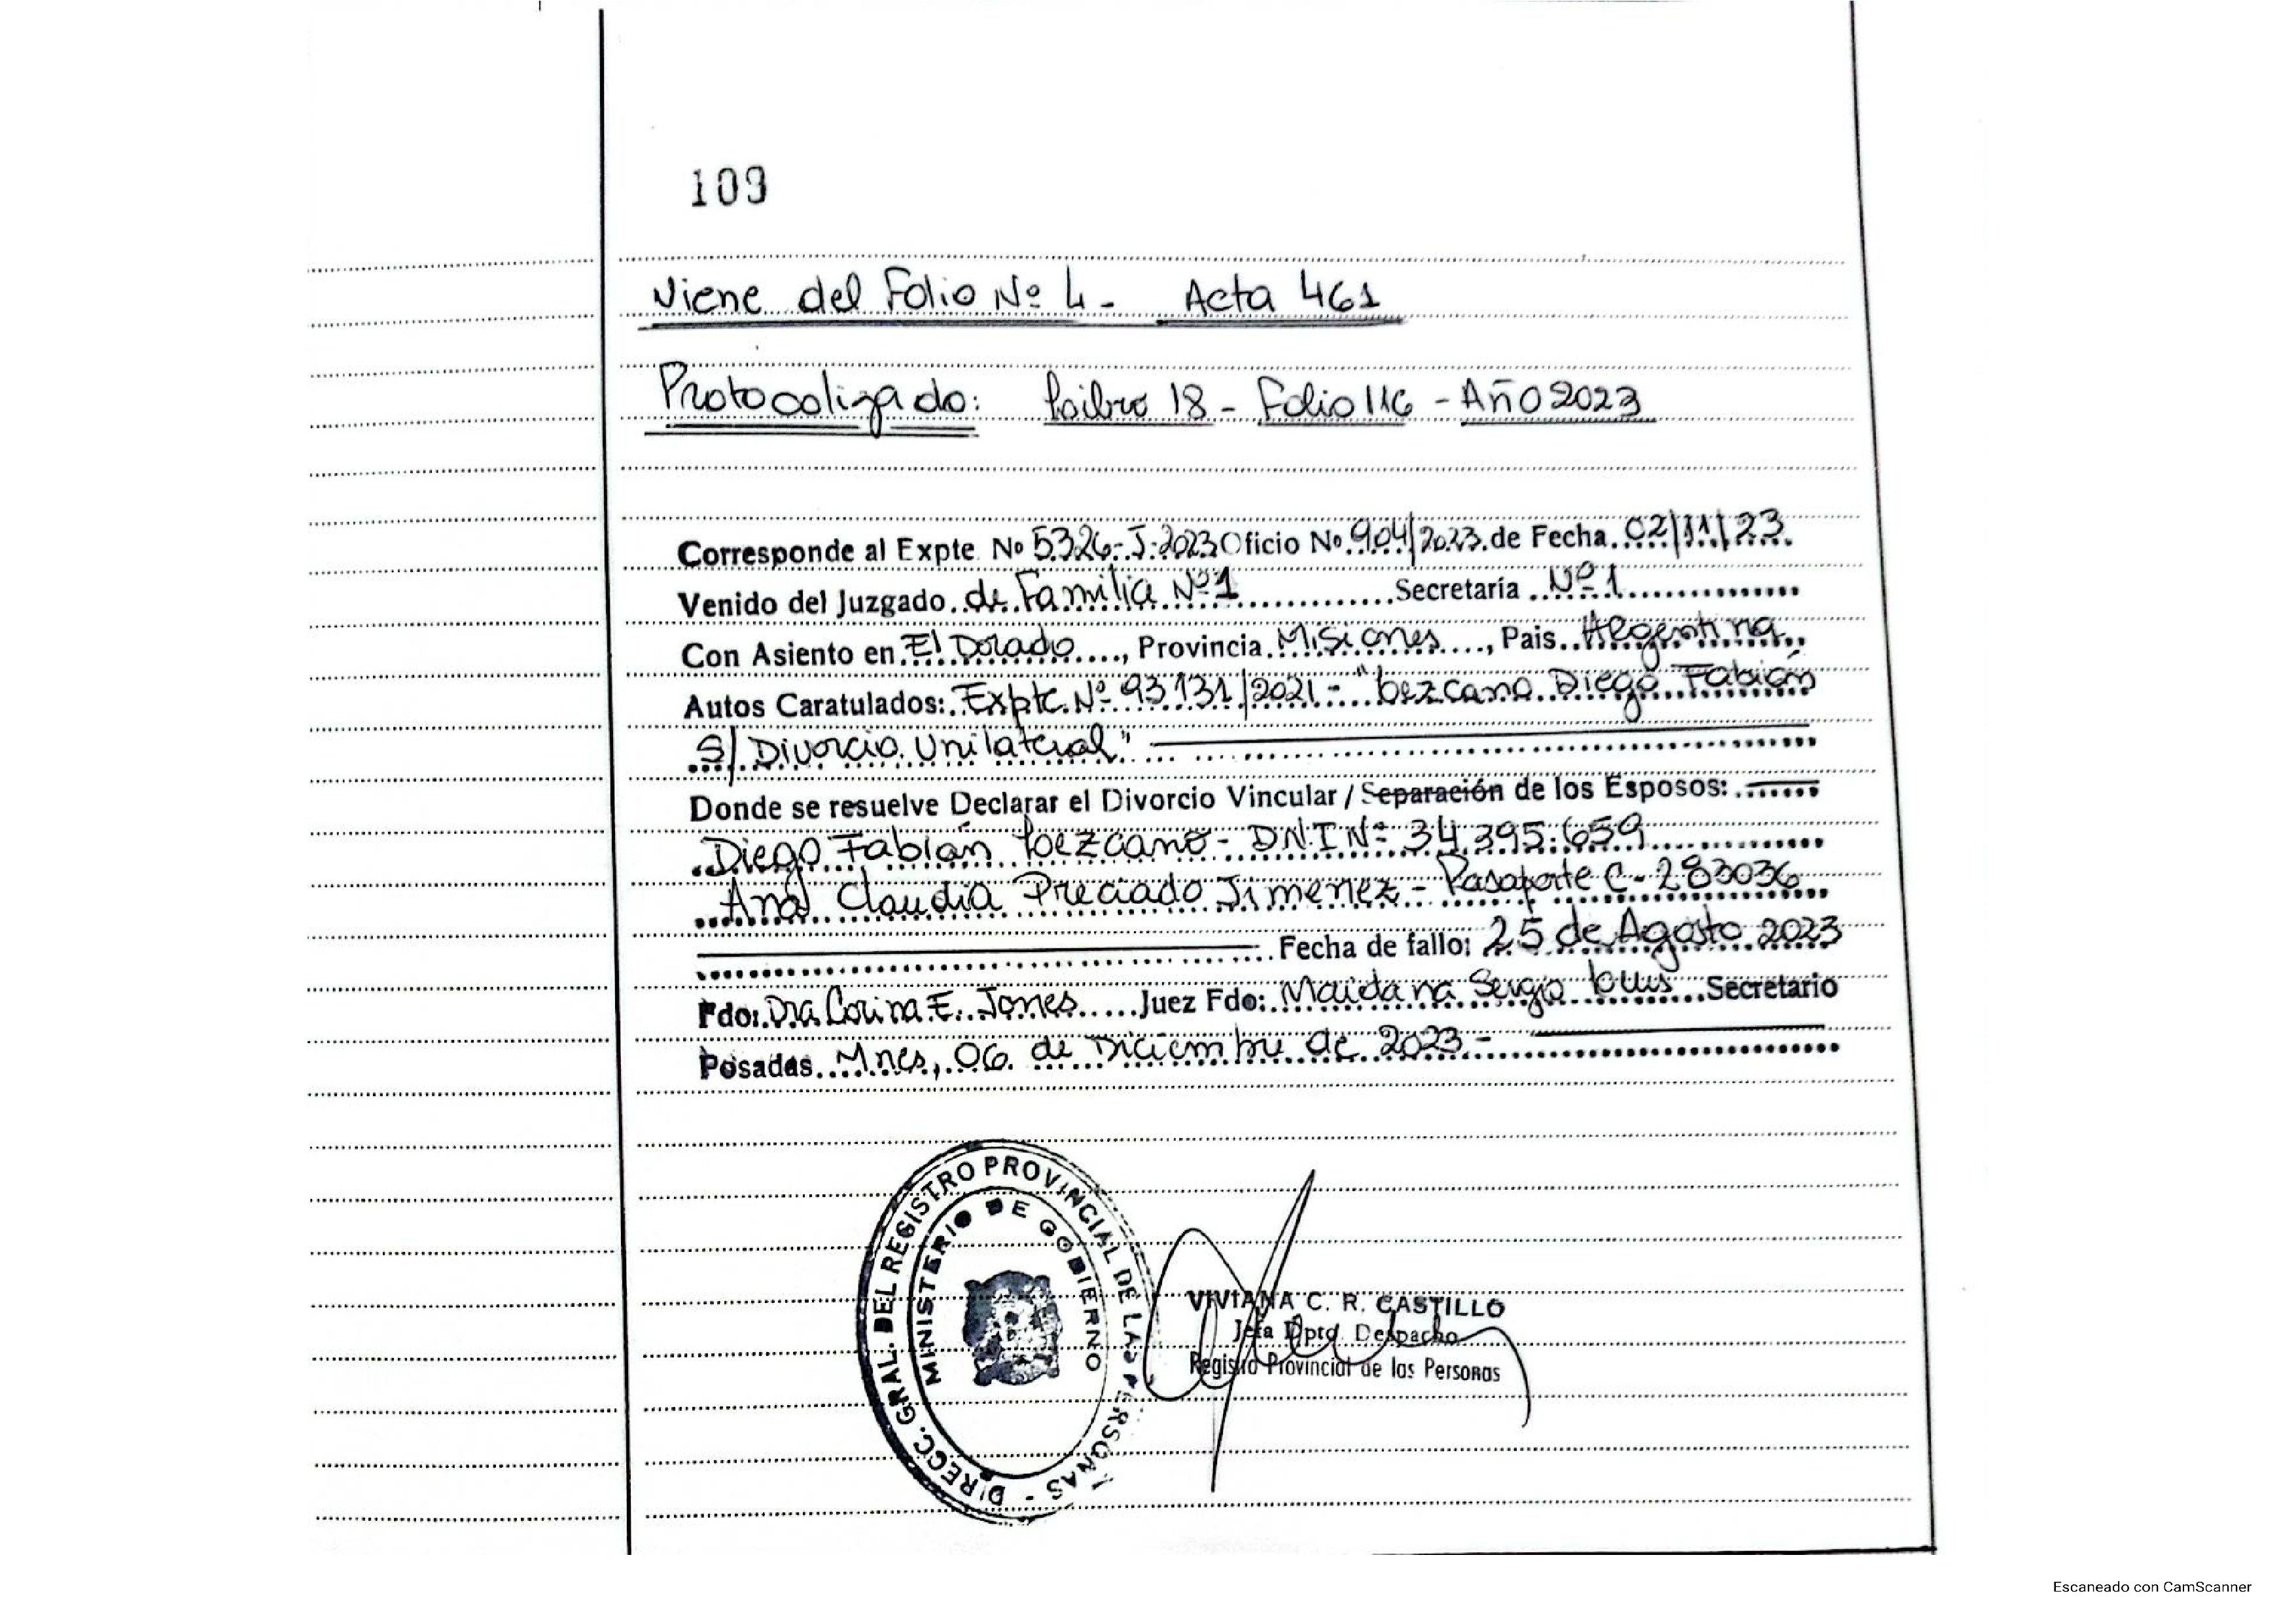 109
Viene del Folio Nº 4 - Acta 461
Protocolizado: Libro 18 - Folio 116 - Año 2023
Corresponde al Expte. Nº 5326-J-2023 Oficio Nº 904/2023 de Fecha 02/11/23.
Venido del Juzgado de Familia Nº 1 Secretaría Nº 1
Con Asiento en El Dorado, Provincia Misiones, Pais Argentina
Autos Caratulados: Expte. Nº 93131/2021 - "Lezcano Diego Fabián
S/ Divorcio Unilateral"
Donde se resuelve Declarar el Divorcio Vincular / Separación de los Esposos:
Diego Fabián Lezcano - DNI Nº 34.395.659
Ana Claudia Preciado Jimenez - Pasaporte C-283036
Fecha de fallo: 25 de Agosto 2023
Fdo: Dra Corina E. Jones Juez Fdo: Maidana Sergio Luis Secretario
Posadas Mnes, 06 de Diciembre de 2023 -
DIRECC. GRAL. DEL REGISTRO PROVINCIAL DE LAS PERSONAS -
MINISTERIO DE GOBIERNO
VIVIANA C. R. CASTILLO
Jefa Dpto. Despacho
Registro Provincial de las Personas
Escaneado con CamScanner